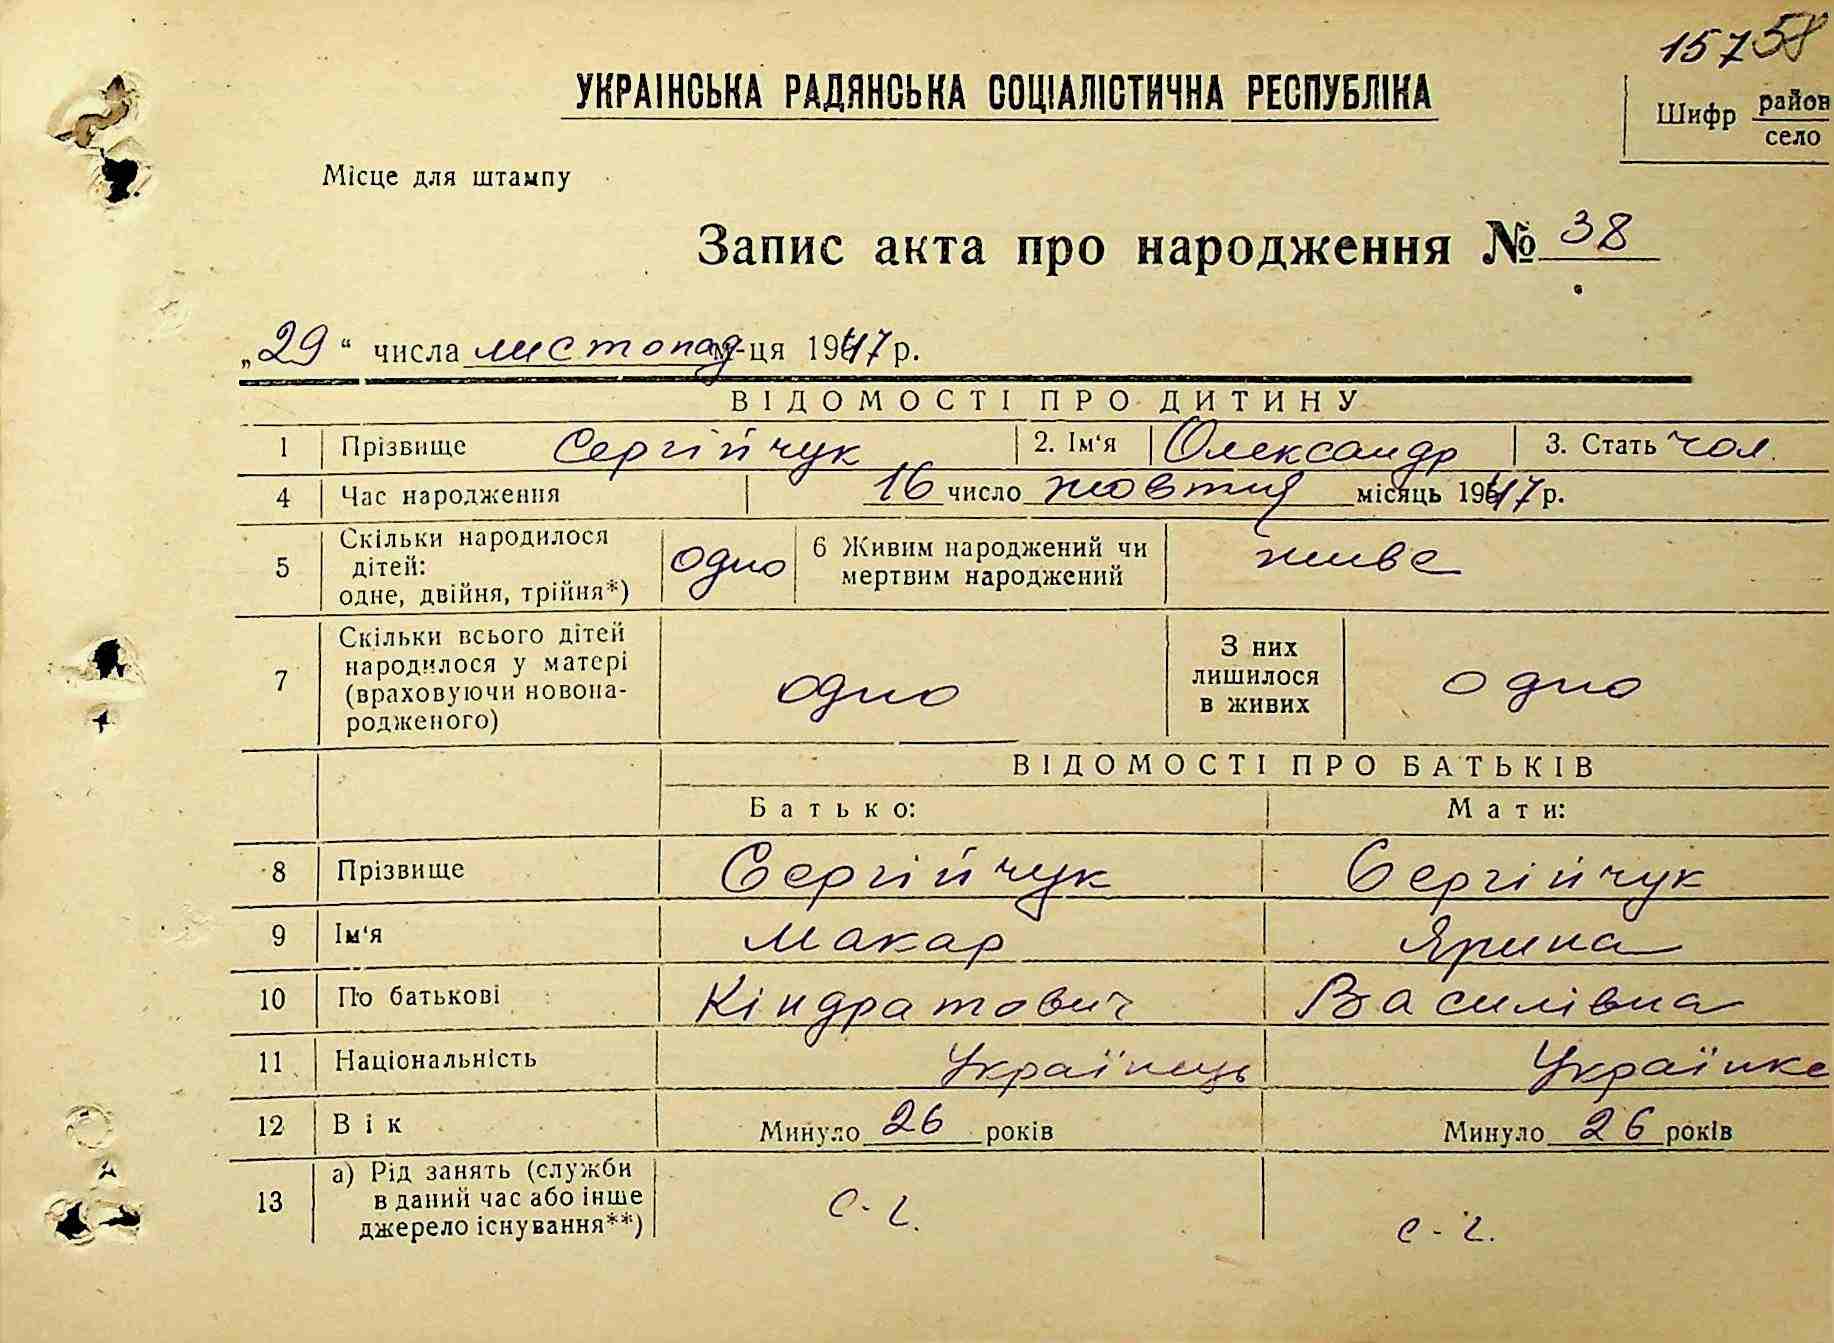 15758
УКРАЇНСЬКА РАДЯНСЬКА СОЦІАЛІСТИЧНА РЕСПУБЛІКА
Шифр район
село
Місце для штампу
Запис акта про народження № 38
„29“ числа листопад м-ця 1947 р.
ВІДОМОСТІ ПРО ДИТИНУ
1 Прізвище Сергійчук 2. Ім'я Олександр 3. Стать чол.
4 Час народження 16 число жовтня місяць 1947 р.
5 Скільки народилося дітей: одне, двійня, трійня*) одно 6 Живим народжений чи мертвим народжений живе
7 Скільки всього дітей народилося у матері (враховуючи новонародженого) одно З них лишилося в живих одно
ВІДОМОСТІ ПРО БАТЬКІВ
Батько: Мати:
8 Прізвище Сергійчук Сергійчук
9 Ім'я Макар Ярина
10 По батькові Кіндратович Василівна
11 Національність Українець Українка
12 Вік Минуло 26 років Минуло 26 років
13 а) Рід занять (служби в даний час або інше джерело існування**) с-г. с-г.